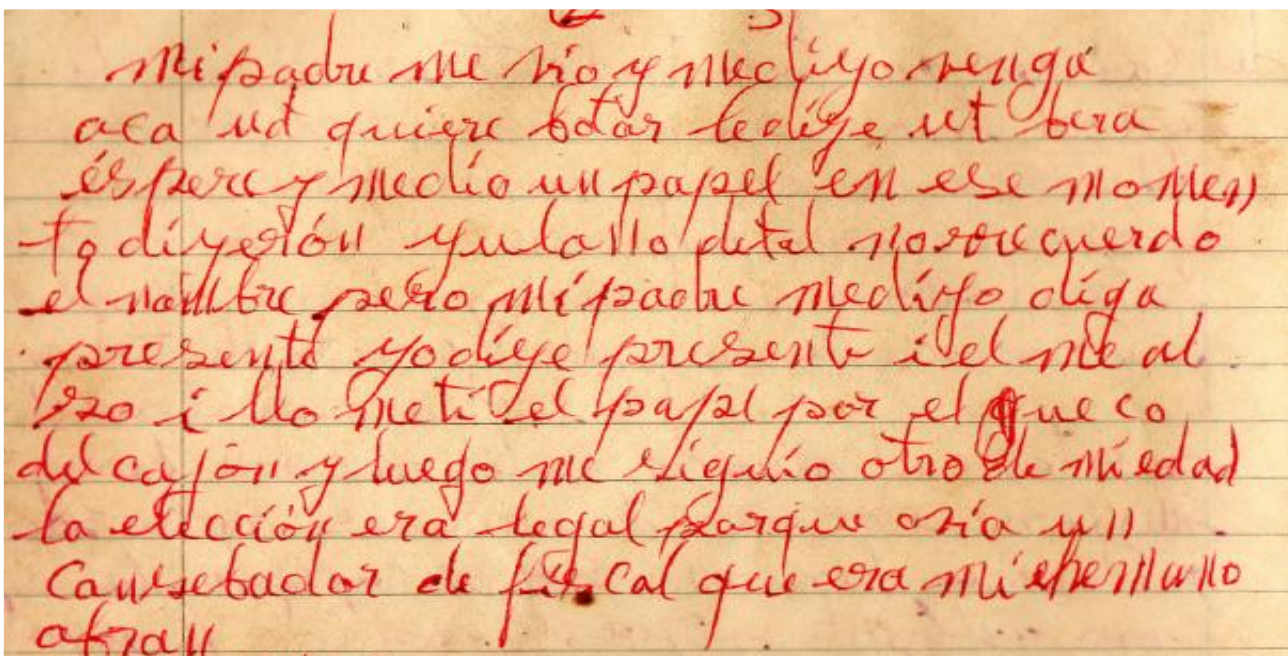 mi padre me vio y mediyo venga
aca ud quiere botar ledije ut bera
éspere y medio un papel en ese momen
to diyerón yulano detal norrecuerdo
el nombre pero mi padre mediyo diga
presente yodiye presente i el me al
zo i llo meti el papel por el queco
del cajón y luego me siguio otro de miedad
la elección era legal porque avia un
Cansebador de fiscal que era
afran